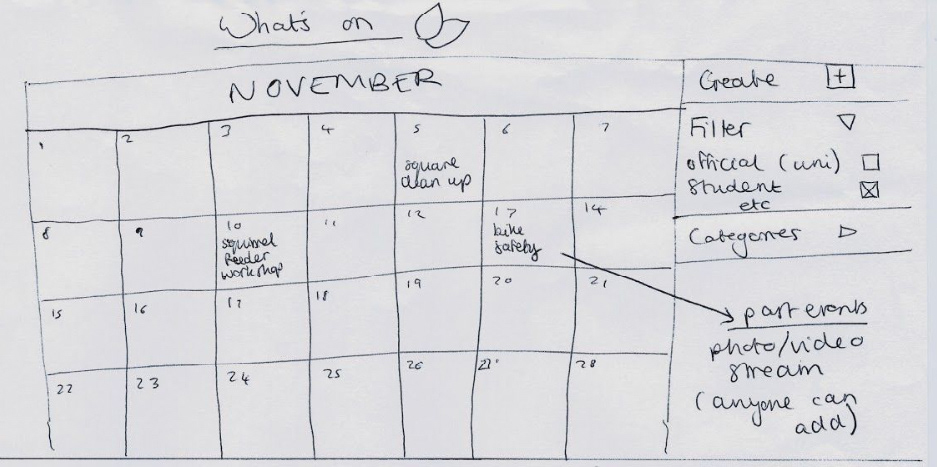 What's on
NOVEMBER
1 2 3 4 5 6 7
square
clean up
8 9 10 11 12 13 14
squirrel
feeder
workshop
bike
safety
15 16 17 18 19 20 21
22 23 24 25 26 27 28
Create +
Filter
official (uni)
Student
etc
Categories
past events
photo/video
stream
(anyone can
add)